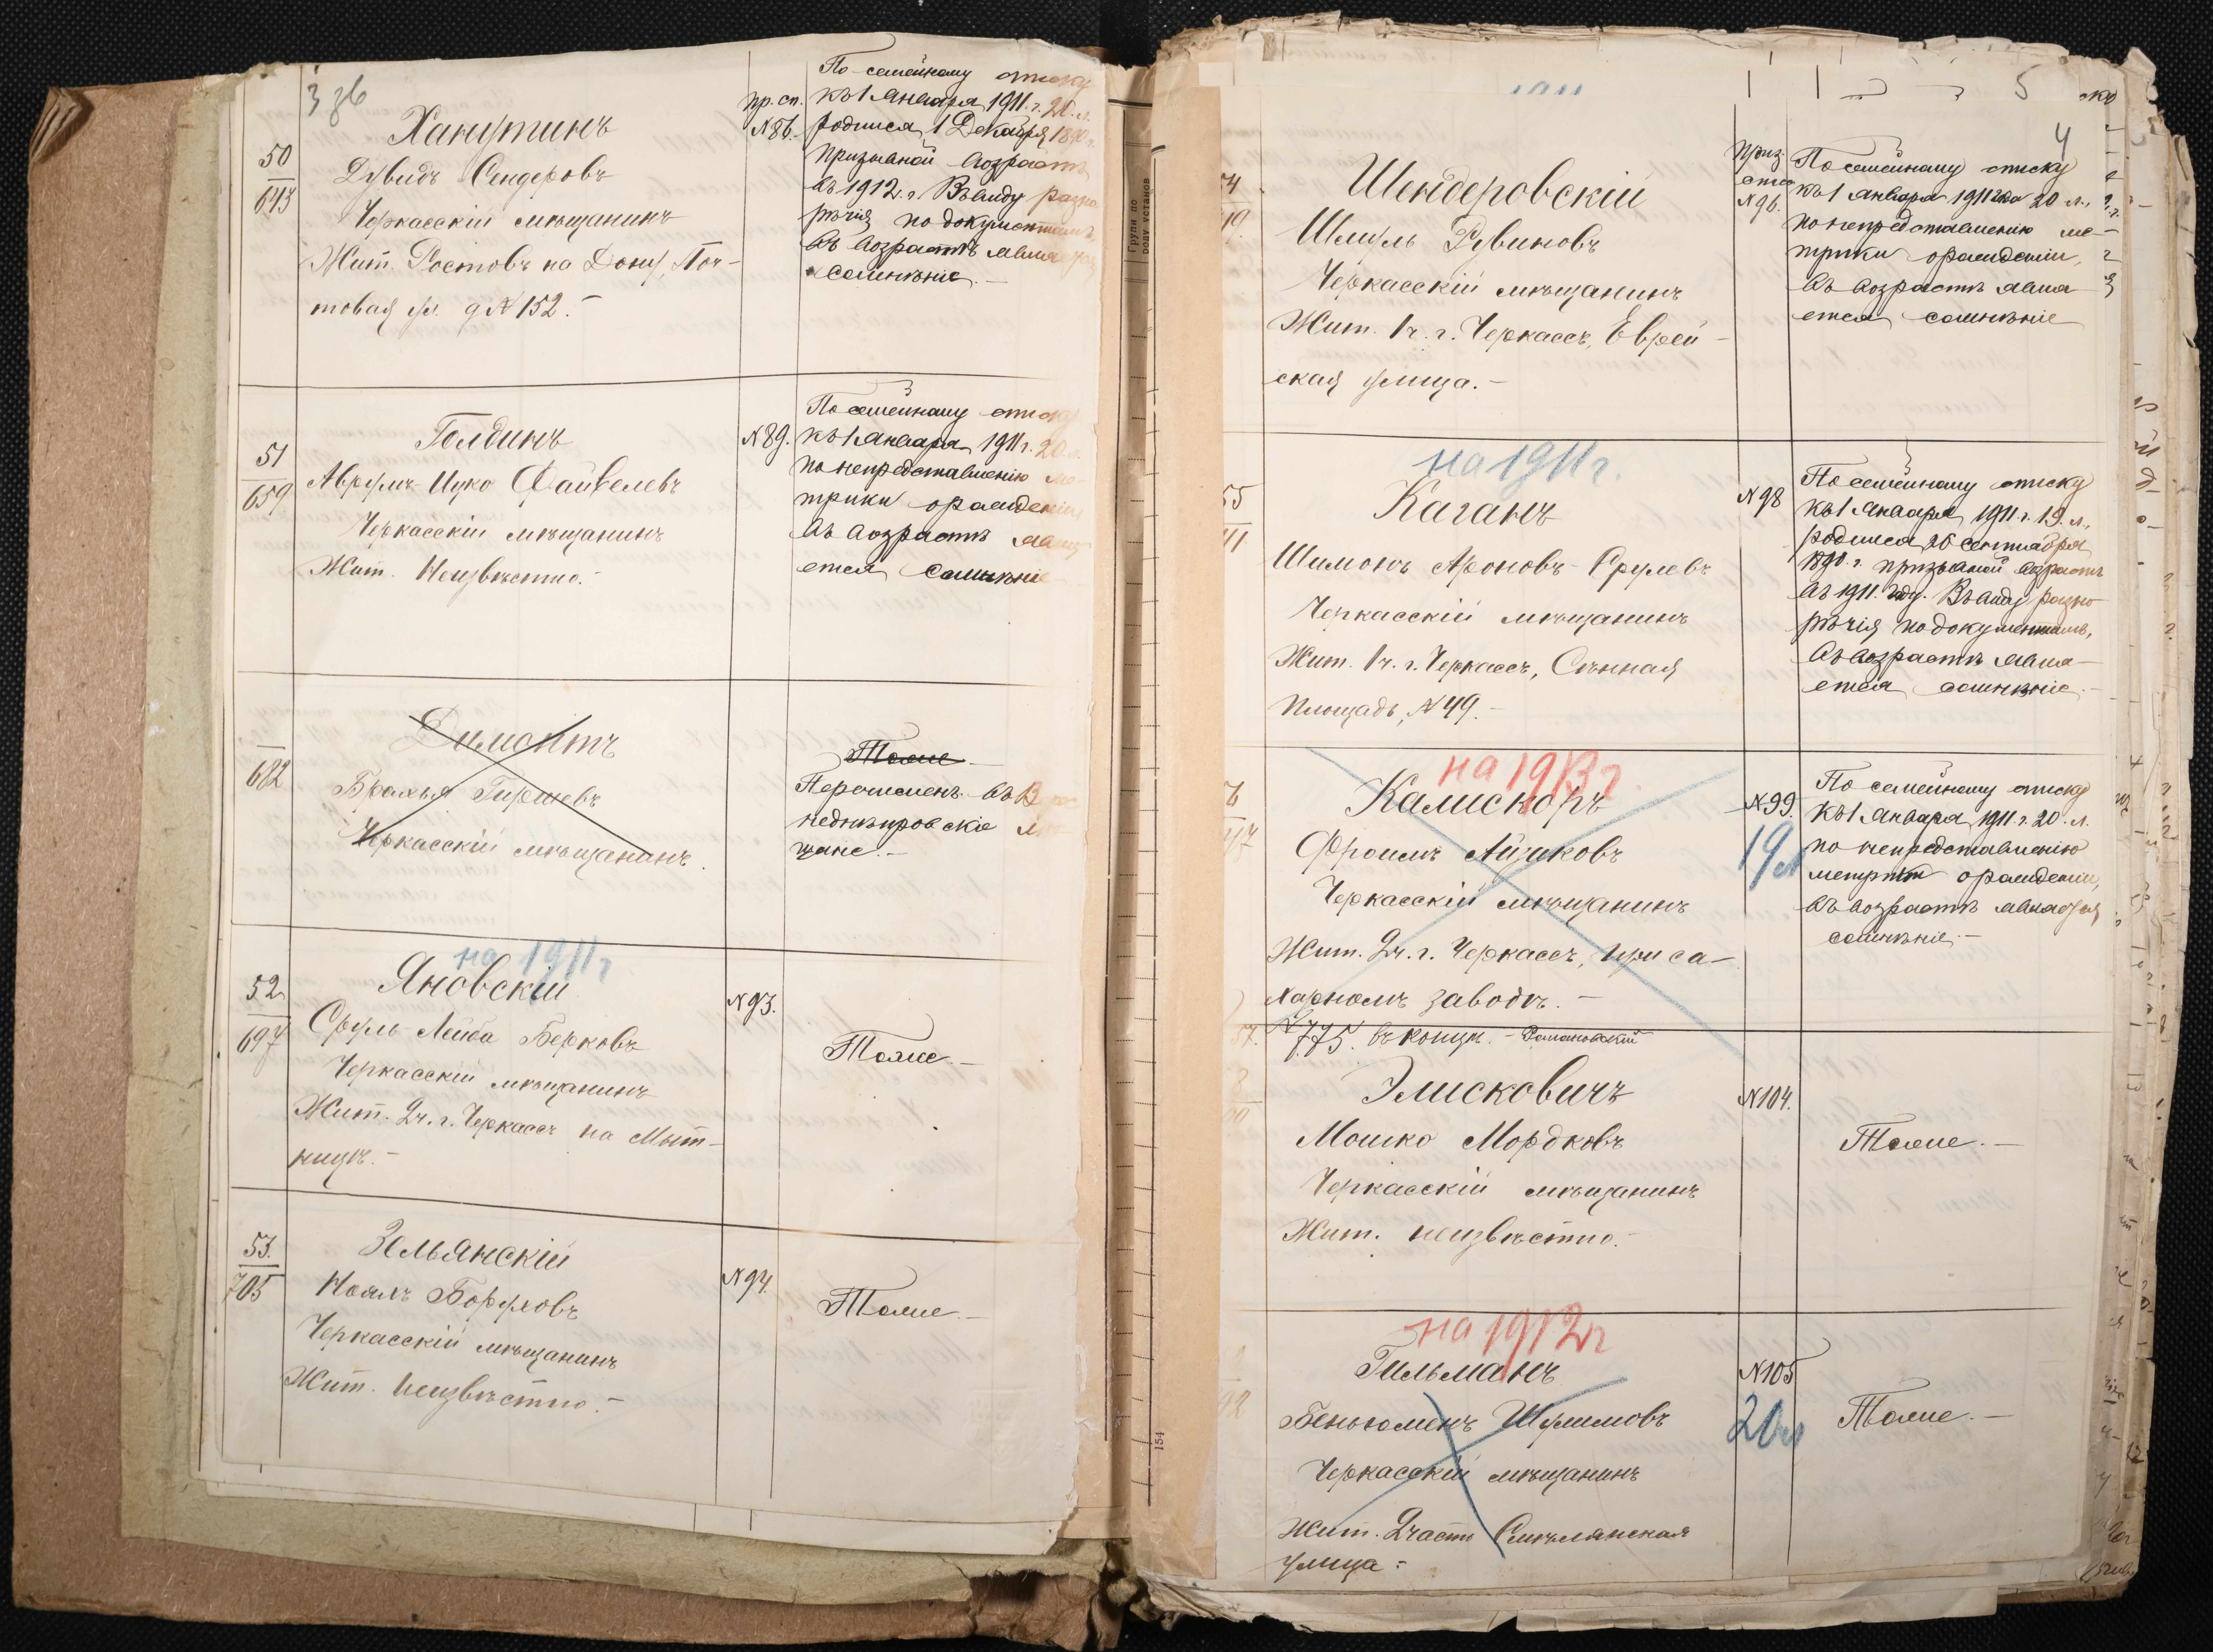 3 зв
50
643
Ханутинъ
Дувидъ Сендеровъ
Черкасскій мѣщанинъ
Жит. Ростовъ на Дону, Поч-
товая ул. д № 152.-
пр. сп.
№ 86.
По семейному списку
къ 1 Января 1911 г. 20 л.
родился 1 Декабря 1890 г.
призывной возрастъ
въ 1912 г. Въ виду разно
рѣчія по документамъ,
въ возрастѣ является
сомнѣніе.-
51
659
Голдинъ
Аврумъ Ицко Файвелевъ
Черкасскій мѣщанинъ
Жит. Неизвѣстно.-
№ 89.
По семейному списку
къ 1 Января 1911 г. 20 л.
по непредставленію ме-
трики о рожденіи
въ возрастѣ явля
ется сомнѣніе
682
Димонтъ
Брахья Гиршевъ
Черкасскій мѣщанинъ.
Тоже
Перечисленъ въ
недньпровскіе мѣ
щане.-
на 1911 г
52
697
Яновскій
Сруль Лейба Берковъ
Черкасскій мѣщанинъ
Жит. 2 ч. г. Черкассъ на Мыт-
ницѣ.-
№ 93.
Тоже.-
53.
705
Зельянскій
Ноахъ Боруховъ
Черкасскій мѣщанинъ
Жит. Неизвѣстно.-
№ 94.
Тоже.-
154
5
4
54
19.
Шендеровскій
Шмуль Рувиновъ
Черкасскій мѣщанинъ
Жит. 1 ч. г. Черкассъ, Еврей-
ская улица.-
Приз.
списк.
№ 96.
По семейному списку
къ 1 Января 1911 года 20 л.,
по непредставленію ме-
трики о рожденіи,
въ возрастѣ явля
ется сомнѣніе
на 1911 г.
55
11
Каганъ
Шимонъ Ароновъ-Срулевъ
Черкасскій мѣщанинъ
Жит. 1 ч. г. Черкассъ, Сѣнная
Площадь, № 49.-
№ 98
По семейному списку
къ 1 Января 1911 г. 19 л.,
родился 26 Сентября
1890 г. призывной возрастъ
въ 1911 году. Въ виду разно
рѣчія по документамъ,
въ возрастѣ явля-
ется сомнѣніе.-
на 1913 г.
Калискоръ
Фроимъ Айзиковъ
Черкасскій мѣщанинъ
Жит. 2 ч. г. Черкассъ, при са-
харномъ заводѣ.-
№ 99.
19 л
По семейному списку
къ 1 Января 1911 г. 20 л.
по непредставленію
метрики о рожденіи,
въ возрастѣ является
сомнѣніе.-
57. № 775. въ концѣ.- Романовскій
Элисковичъ
Мошко Мордковъ
Черкасскій мѣщанинъ
Жит. неизвѣстно.-
№ 104.
Тоже.-
на 1912 г
Гильманъ
Беньюменъ Шулимовъ
Черкасскій мѣщанинъ
Жит. 2 части Смѣлянская
улица.-
№ 105
20 л
Тоже.-